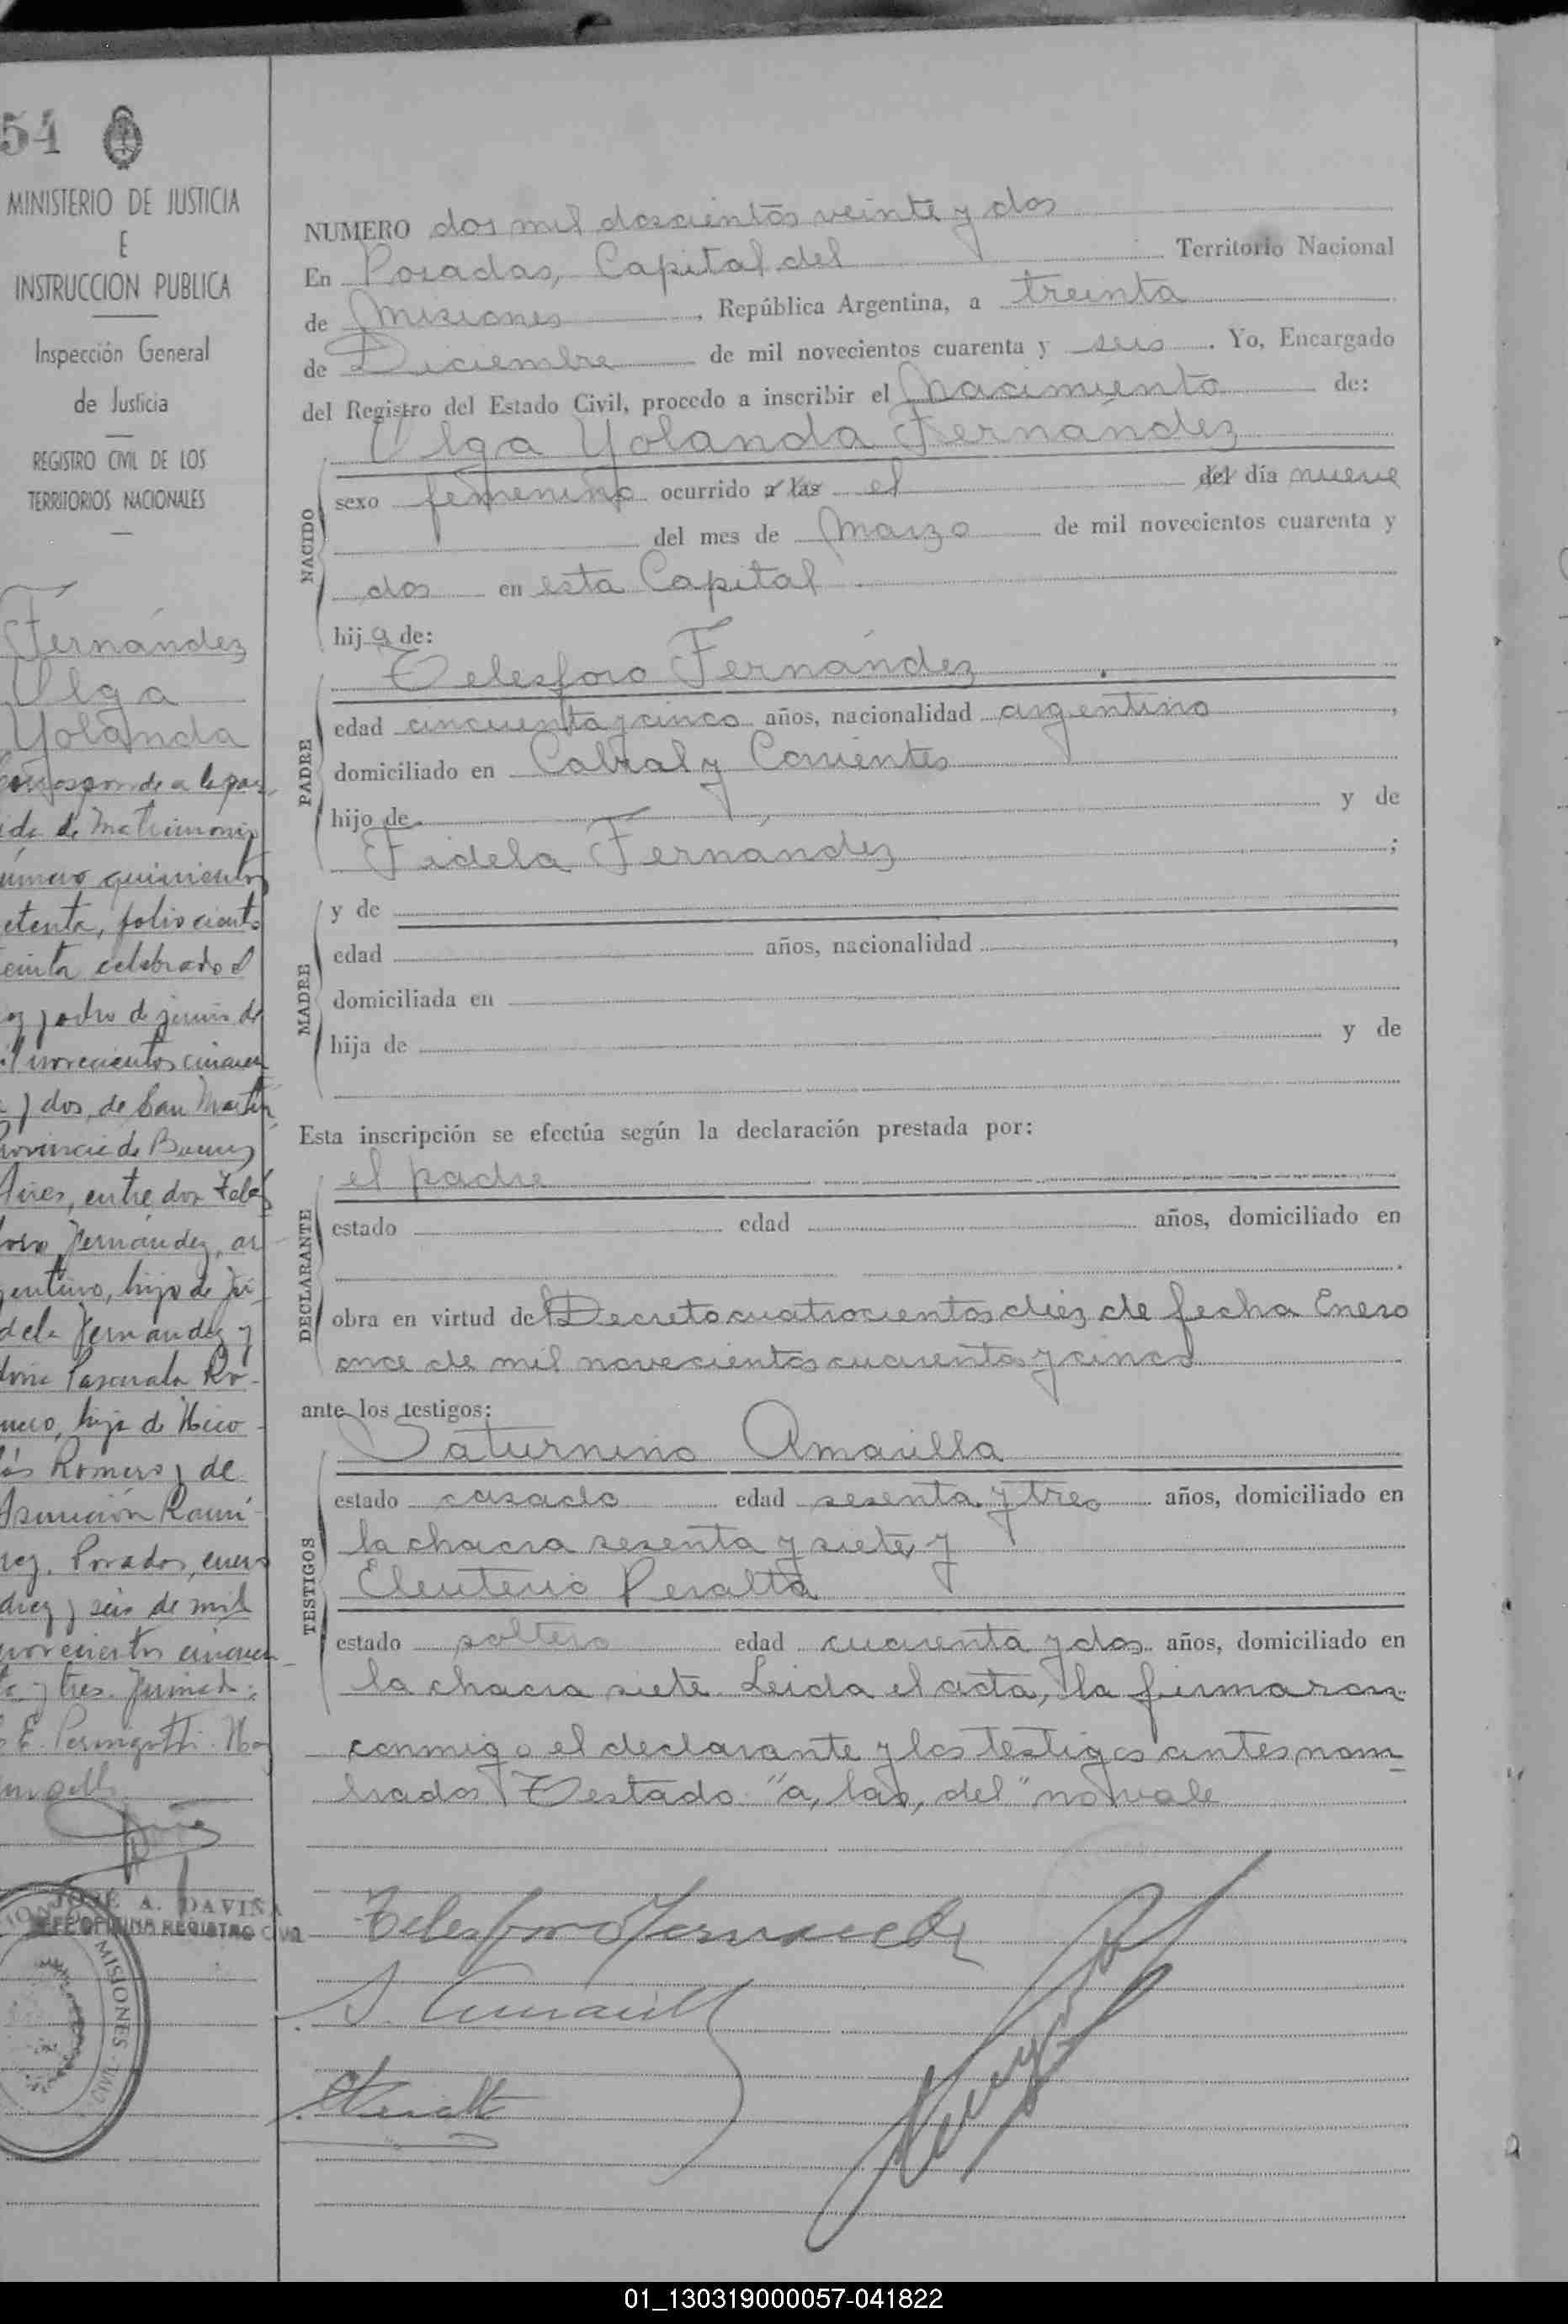 54
MINISTERIO DE JUSTICIA
E
INSTRUCCION PUBLICA
Inspección General
de Justicia
REGISTRO CIVIL DE LOS
TERRITORIOS NACIONALES
Fernández
Olga
Yolanda
Corresponde a la par-
ida de Matrimonio
úmero quinientos
etenta, folio ciento
einta celebrado el
ez y ocho de junio de
il novecientos cincuen
a y dos, de San Martin
Provincia de Buenos
Aires, entre don Teles
foro Fernández, ar
gentino, hijo de Fi-
dela Fernández y
doña Pascuala Ro-
mero, hija de Nico-
lás Romero y de
Asunción Ramí-
rez. Posadas, enero
diez y seis de mil
novecientos cincuen-
ta y tres. Firmado:
E. Peringotti.
JOSÉ A. DAVIÑA
JEFE OFICINA REGISTRO CIVIL
MISIONES
NUMERO dos mil doscientos veinte y dos
En Posadas, Capital del Territorio Nacional
de Misiones, República Argentina, a treinta
de Diciembre de mil novecientos cuarenta y seis. Yo, Encargado
del Registro del Estado Civil, procedo a inscribir el Nacimiento de:
Olga Yolanda Fernández
NACIDO
sexo femenino ocurrido a las el del día nueve
del mes de Marzo de mil novecientos cuarenta y
dos en esta Capital
hija de:
PADRE
Telesforo Fernández
edad cincuenta y cinco años, nacionalidad argentino,
domiciliado en Cabral y Corrientes
hijo de y de
Fidela Fernández;
MADRE
y de
edad años, nacionalidad,
domiciliada en
hija de y de
Esta inscripción se efectúa según la declaración prestada por:
DECLARANTE
el padre
estado edad años, domiciliado en
.
obra en virtud de Decreto cuatrocientos diez de fecha Enero
once de mil novecientos cuarenta y cinco
ante los testigos:
TESTIGOS
Saturnino Amarilla
estado casado edad sesenta y tres años, domiciliado en
la chacra sesenta y siete y
Eleuterio Peralta
estado soltero edad cuarenta y dos años, domiciliado en
la chacra siete. Leida el acta, la firmaron
conmigo el declarante y los testigos antes nom-
brados Testado "a, las, del" no vale
Telesforo Fernandez
S. Amarilla
01_130319000057-041822